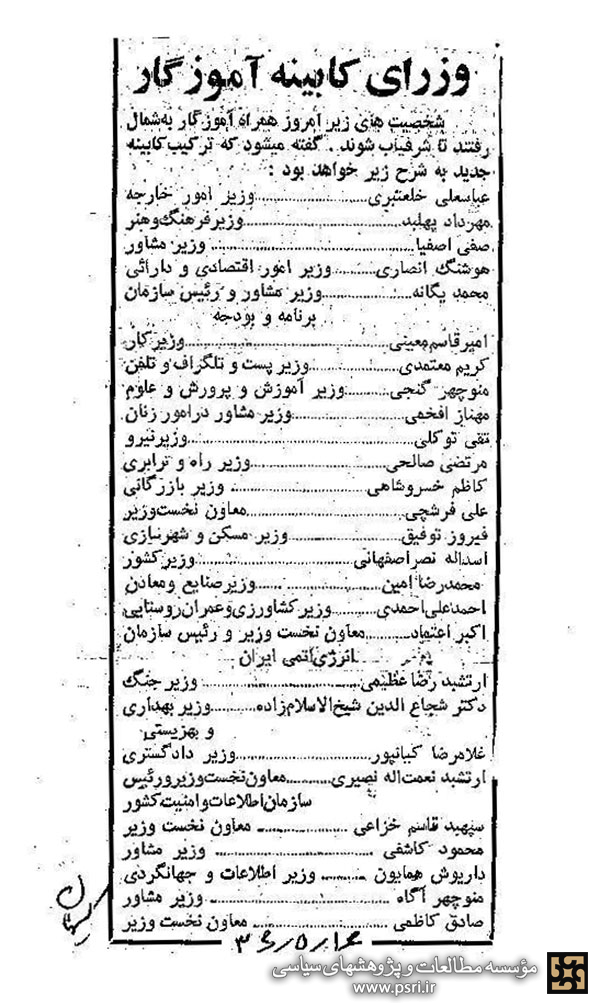 وزرای کابینه آموزگار
شخصیت های زیر امروز همراه آموزگار به‌شمال
رفتند تا شرفیاب شوند . گفته میشود که ترکیب کابینه
جدید به شرح زیر خواهد بود :
عباسعلی خلعتبری..........وزیر امور خارجه
مهرداد پهلبد..........وزیرفرهنگ‌وهنر
صفی اصفیا..........وزیر مشاور
هوشنگ انصاری..........وزیر امور اقتصادی و دارائی
محمد یگانه..........وزیر مشاور و رئیس سازمان
برنامه و بودجه
امیرقاسم‌معینی..........وزیرکار
کریم معتمدی..........وزیر پست و تلگراف و تلفن
منوچهر گنجی..........وزیر آموزش و پرورش و علوم
مهناز افخمی..........وزیر مشاور درامور زنان
تقی توکلی..........وزیرنیرو
مرتضی صالحی..........وزیر راه و ترابری
کاظم خسروشاهی..........وزیر بازرگانی
علی فرشچی..........معاون نخست‌وزیر
فیروز توفیق..........وزیر مسکن و شهرسازی
اسداله نصراصفهانی..........وزیرکشور
محمدرضا امین..........وزیرصنایع ومعادن
احمدعلی‌احمدی..........وزیرکشاورزی‌وعمران‌روستایی
اکبر اعتماد..........معاون نخست وزیر و رئیس سازمان
انرژی‌اتمی ایران
ارتشبد رضا عظیمی..........وزیر جنگ
دکتر شجاع الدین شیخ‌الاسلام‌زاده..........وزیر بهداری
و بهزیستی
غلامرضا کیانپور..........وزیر دادگستری
ارتشبد نعمت‌اله نصیری..........معاون‌نخست‌وزیرورئیس
سازمان‌اطلاعات‌وامنیت‌کشور
سپهبد قاسم خزاعی..........معاون نخست وزیر
محمود کاشفی..........وزیر مشاور
داریوش همایون..........وزیر اطلاعات و جهانگردی
منوچهر آگاه..........وزیر مشاور
صادق کاظمی..........معاون نخست وزیر
کیهان
۳۶/۵/۱۶
مؤسسه مطالعات و پژوهشهای سیاسی
www.psri.ir